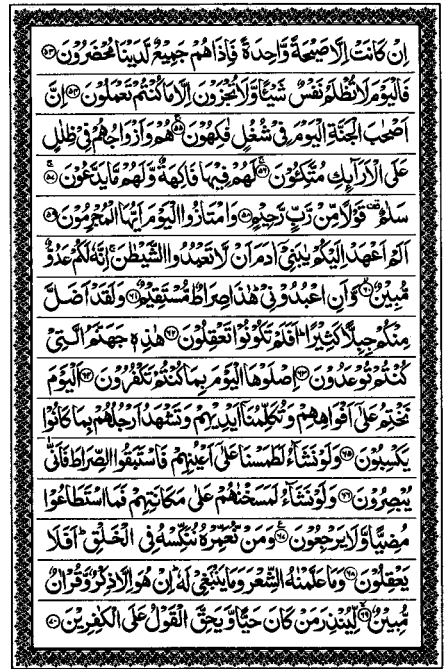 اِنْ كَانَتْ اِلَّا صَيْحَةً وَّاحِدَةً فَاِذَا هُمْ جَمِيْعٌ لَّدَيْنَا مُحْضَرُوْنَ ۝۵۳
فَالْيَوْمَ لَا تُظْلَمُ نَفْسٌ شَيْـًٔا وَّلَا تُجْزَوْنَ اِلَّا مَا كُنْتُمْ تَعْمَلُوْنَ ۝۵۴ اِنَّ
اَصْحٰبَ الْجَنَّةِ الْيَوْمَ فِيْ شُغُلٍ فٰكِهُوْنَ ۝۵۵ هُمْ وَاَزْوَاجُهُمْ فِيْ ظِلٰلٍ
عَلَى الْاَرَآئِكِ مُتَّكِـُٔوْنَ ۝۵۶ لَهُمْ فِيْهَا فَاكِهَةٌ وَّلَهُمْ مَّا يَدَّعُوْنَ ۝۵۷
سَلٰمٌ ۣ قَوْلًا مِّنْ رَّبٍّ رَّحِيْمٍ ۝۵۸ وَامْتَازُوا الْيَوْمَ اَيُّهَا الْمُجْرِمُوْنَ ۝۵۹
اَلَمْ اَعْهَدْ اِلَيْكُمْ يٰبَنِيْٓ اٰدَمَ اَنْ لَّا تَعْبُدُوا الشَّيْطٰنَ ۚ اِنَّهٗ لَكُمْ عَدُوٌّ
مُّبِيْنٌ ۝۶۰ وَّاَنِ اعْبُدُوْنِيْ ؕ هٰذَا صِرَاطٌ مُّسْتَقِيْمٌ ۝۶۱ وَلَقَدْ اَضَلَّ
مِنْكُمْ جِبِلًّا كَثِيْرًا ؕ اَفَلَمْ تَكُوْنُوْا تَعْقِلُوْنَ ۝۶۲ هٰذِهٖ جَهَنَّمُ الَّتِيْ
كُنْتُمْ تُوْعَدُوْنَ ۝۶۳ اِصْلَوْهَا الْيَوْمَ بِمَا كُنْتُمْ تَكْفُرُوْنَ ۝۶۴ اَلْيَوْمَ
نَخْتِمُ عَلٰٓى اَفْوَاهِهِمْ وَتُكَلِّمُنَآ اَيْدِيْهِمْ وَتَشْهَدُ اَرْجُلُهُمْ بِمَا كَانُوْا
يَكْسِبُوْنَ ۝۶۵ وَلَوْ نَشَآءُ لَطَمَسْنَا عَلٰٓى اَعْيُنِهِمْ فَاسْتَبَقُوا الصِّرَاطَ فَاَنّٰى
يُبْصِرُوْنَ ۝۶۶ وَلَوْ نَشَآءُ لَمَسَخْنٰهُمْ عَلٰى مَكَانَتِهِمْ فَمَا اسْتَطَاعُوْا
مُضِيًّا وَّلَا يَرْجِعُوْنَ ۝۶۷ وَمَنْ نُّعَمِّرْهُ نُنَكِّسْهُ فِي الْخَلْقِ ؕ اَفَلَا
يَعْقِلُوْنَ ۝۶۸ وَمَا عَلَّمْنٰهُ الشِّعْرَ وَمَا يَنْۢبَغِيْ لَهٗ ؕ اِنْ هُوَ اِلَّا ذِكْرٌ وَّقُرْاٰنٌ
مُّبِيْنٌ ۝۶۹ لِّيُنْذِرَ مَنْ كَانَ حَيًّا وَّيَحِقَّ الْقَوْلُ عَلَى الْكٰفِرِيْنَ ۝۷۰